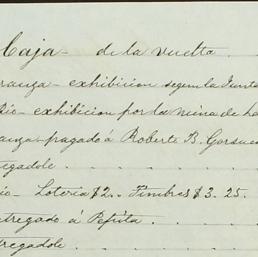 Caja - de la vuelta.
ranza - exhibicion segun la Junta
io - exhibicion por la mina de La
anza - pagado á Roberto B. Gorsuc
egadole.
io - Loteria $2.. Timbres $3.25.
ntregado á Pepita.
tregadole.